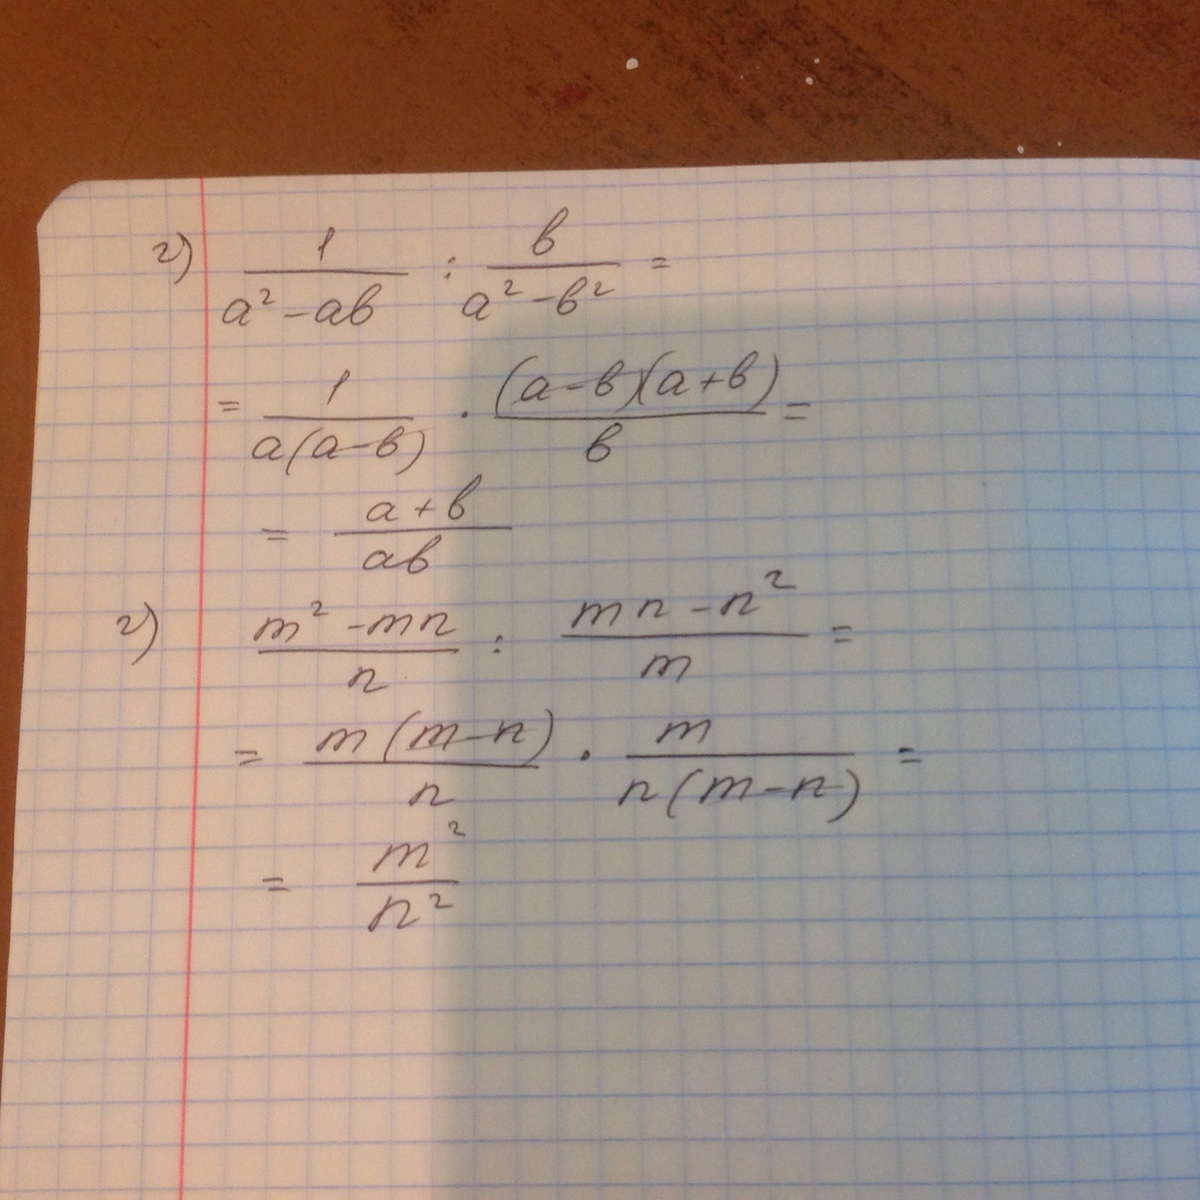 г) 1/(a² - ab) : b/(a² - b²) =
= 1/(a(a-b)) · ((a-b)(a+b))/b =
= (a+b)/(ab)
г) (m² - mn)/n : (mn - n²)/m =
= (m(m-n))/n · m/(n(m-n)) =
= m²/n²